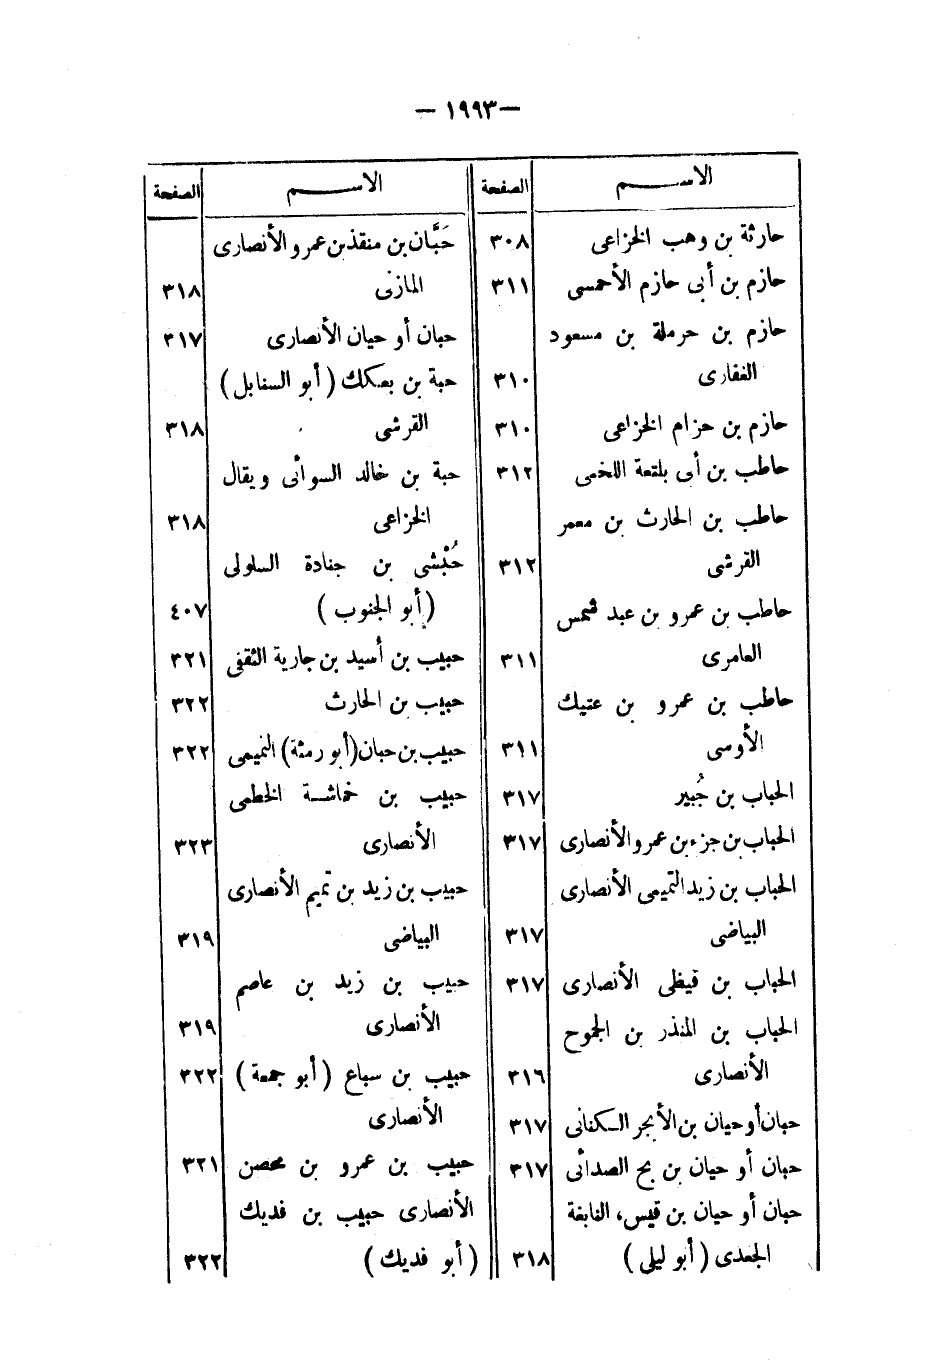 — ١٩٩٣ —
الاســـم الصفحة
حارثة بن وهب الخزاعى ٣٠٨
حازم بن أبى حازم الأحمسى ٣١١
حازم بن حرملة بن مسعود
الغفارى ٣١٠
حازم بن حزام الخزاعى ٣١٠
حاطب بن أبى بلتعة اللخمى ٣١٢
حاطب بن الحارث بن معمر
القرشى ٣١٢
حاطب بن عمرو بن عبد شمس
العامرى ٣١١
حاطب بن عمرو بن عتيك
الأوسى ٣١١
الحباب بن جُبير ٣١٧
الحباب بن جزء بن عمرو الأنصارى ٣١٧
الحباب بن زيد التميمى الأنصارى
البياضى ٣١٧
الحباب بن قيظى الأنصارى ٣١٧
الحباب بن المنذر بن الجموح
الأنصارى ٣١٦
حبان أو حيان بن الأبجر الكنانى ٣١٧
حبان أو حيان بن بح الصدائى ٣١٧
حبان أو حيان بن قيس، النابغة
الجعدى (أبو ليلى) ٣١٨
الاســـم الصفحة
حَبَّان بن منقذ بن عمرو الأنصارى
المازنى ٣١٨
حبان أو حيان الأنصارى ٣١٧
حبة بن بعكك (أبو السنابل)
القرشى ٣١٨
حبة بن خالد السوائى ويقال
الخزاعى ٣١٨
حُبْشى بن جنادة السلولى
(أبو الجنوب) ٤٠٧
حبيب بن أسيد بن جارية الثقفى ٣٢١
حبيب بن الحارث ٣٢٢
حبيب بن حبان (أبو رمثة) التميمى ٣٢٢
حبيب بن خماشة الخطمى
الأنصارى ٣٢٣
حبيب بن زيد بن تميم الأنصارى
البياضى ٣١٩
حبيب بن زيد بن عاصم
الأنصارى ٣١٩
حبيب بن سباع (أبو جمعة) ٣٢٢
الأنصارى
حبيب بن عمرو بن محصن ٣٢١
الأنصارى حبيب بن فديك
(أبو فديك) ٣٢٢